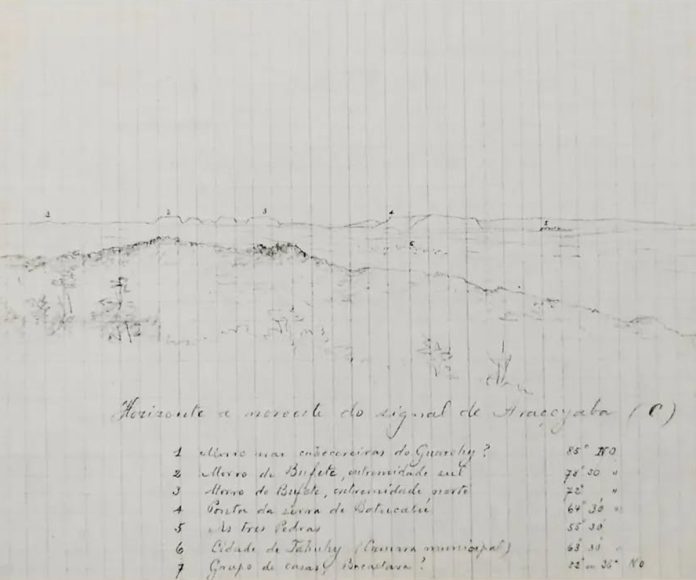 1 2 3 4 5
6
Horizonte a noroeste do signal de Araçoyaba (C)
1 Morro nas cabeceiras do Guarehy? 85° NO
2 Morro do Bufete, extremidade sul 78° 30 "
3 Morro do Bufete, extremidade norte 72° "
4 Ponta da serra de Botucatú 64° 30 "
5 As tres Pedras 55° 30
6 Cidade de Tatuhy (Camara municipal) 63° 30 "
7 Grupo de casas, ? 22° a 36° NO